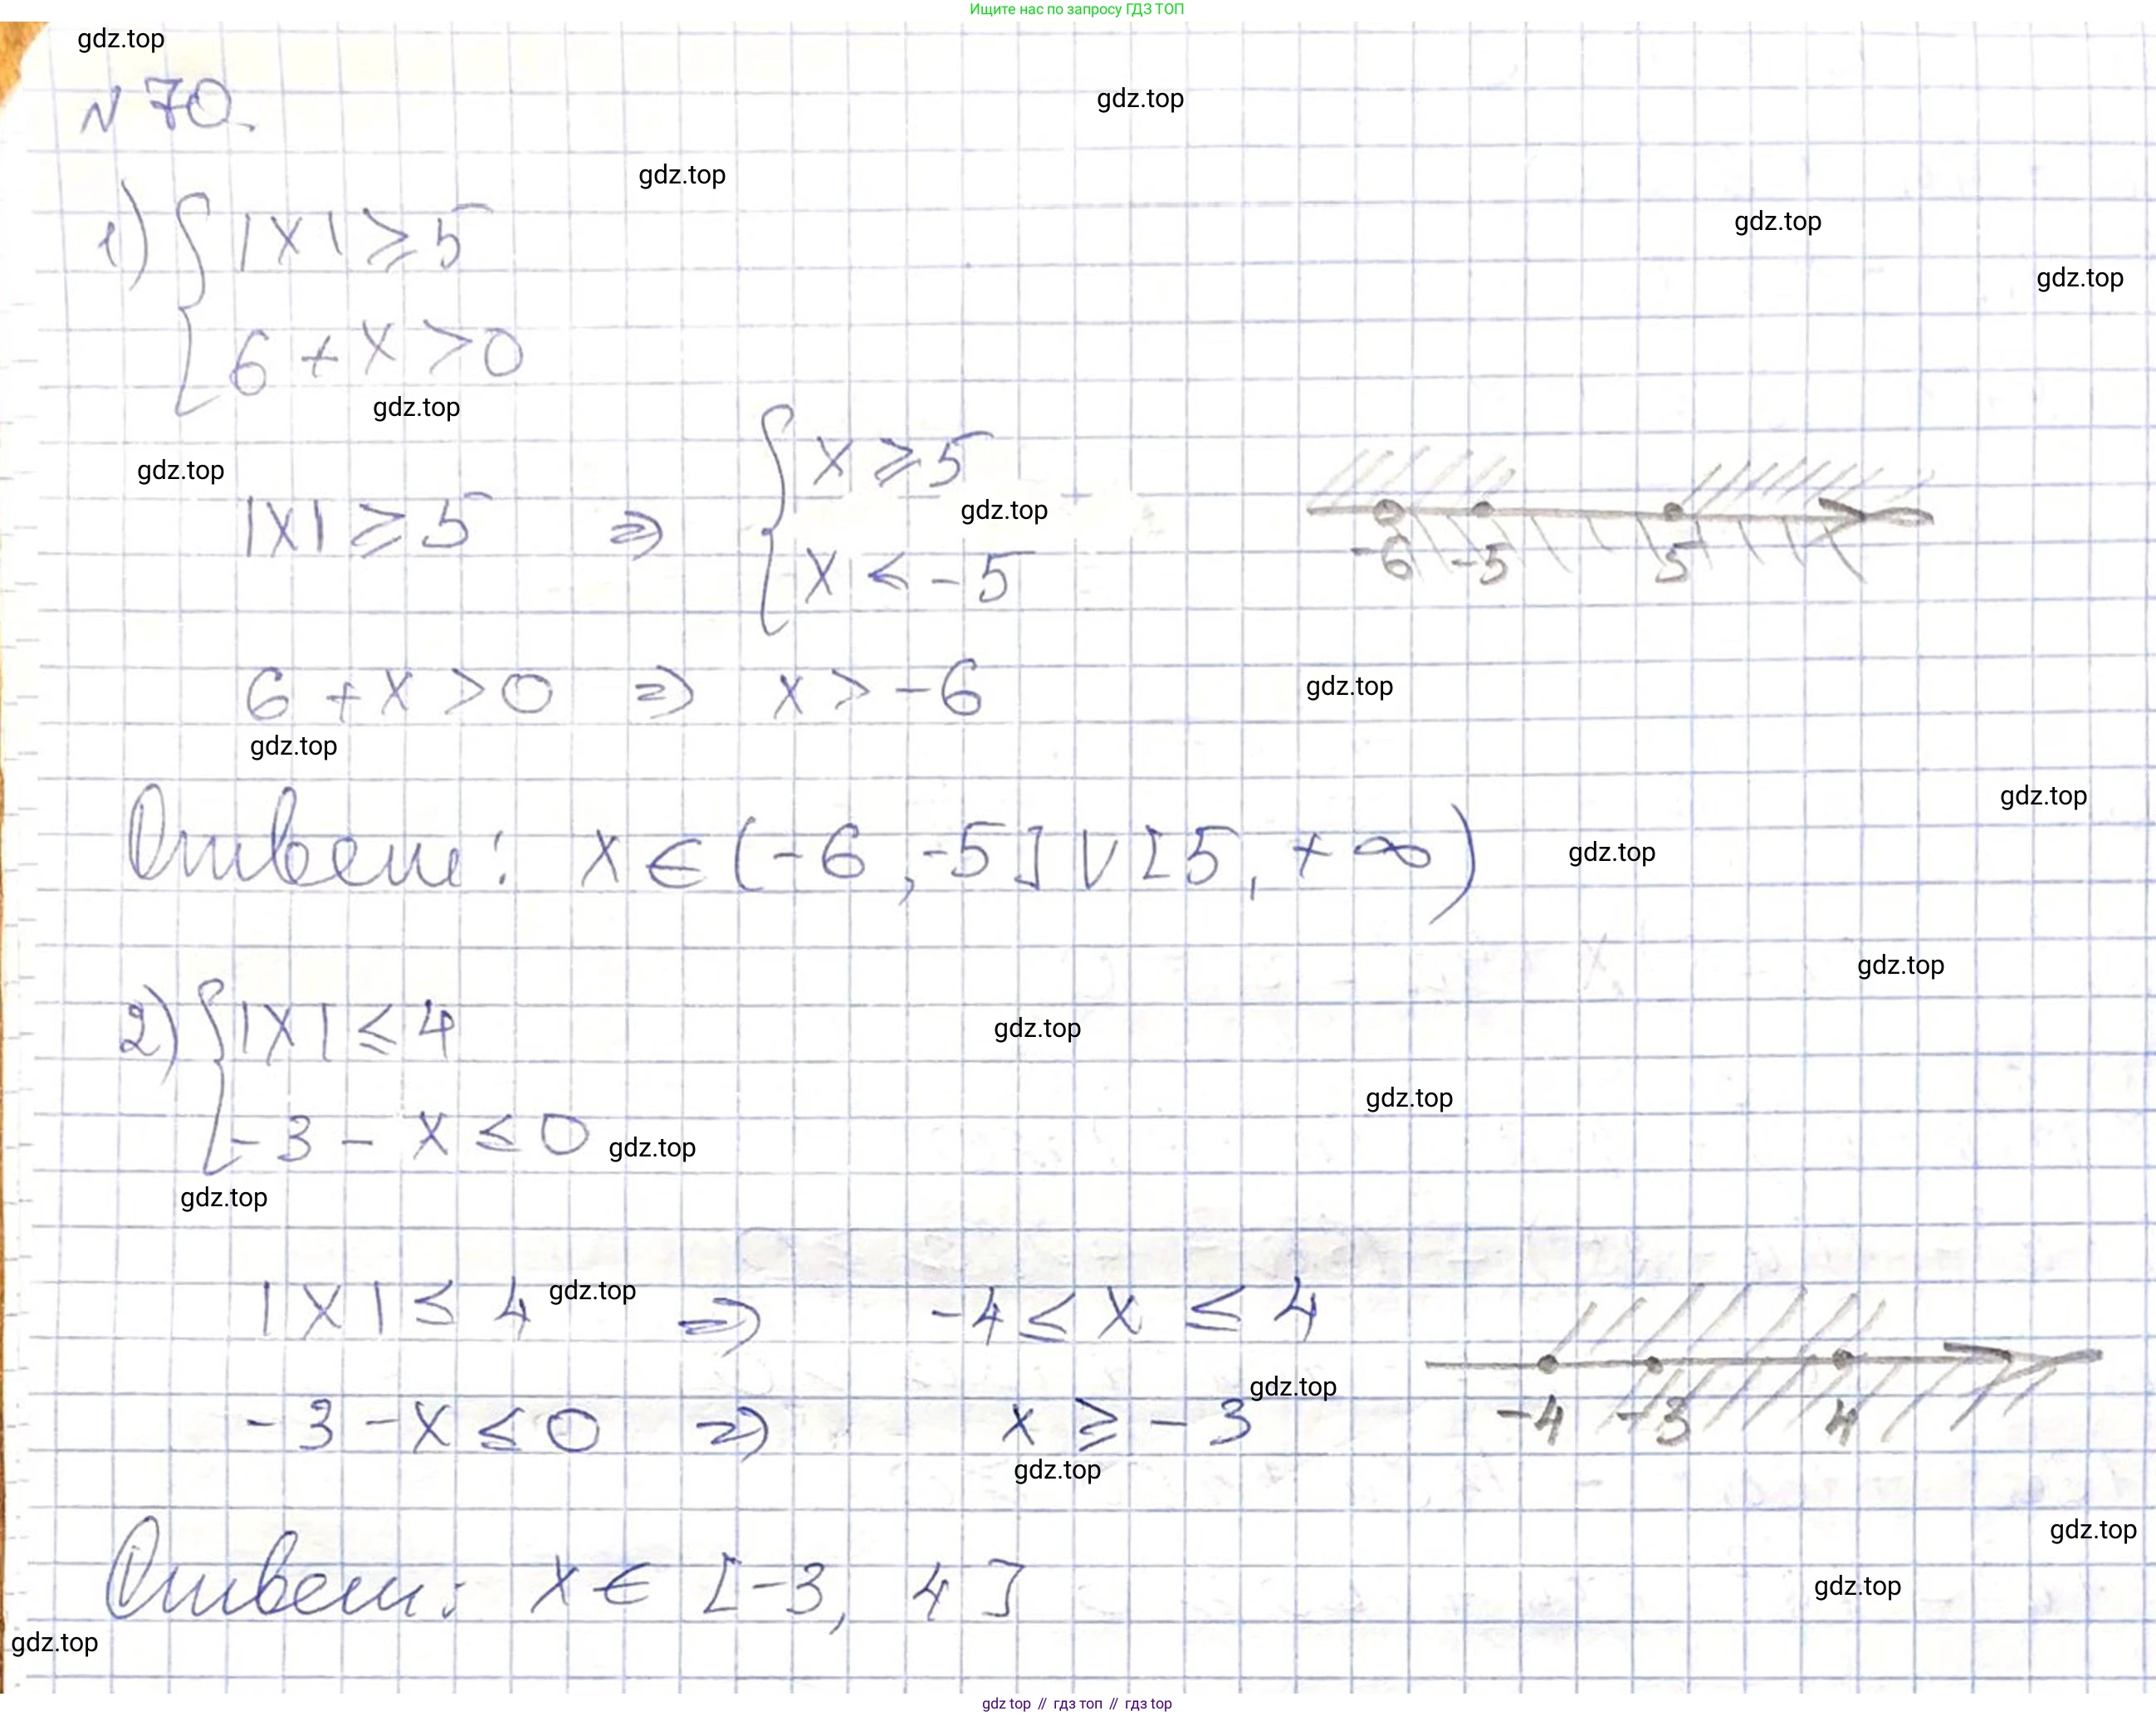 Ищите нас по запросу ГДЗ ТОП
gdz.top
N 70.
gdz.top
gdz.top
gdz.top
1) { |x| ≥ 5
gdz.top
6 + x > 0
gdz.top
gdz.top
|x| ≥ 5 ⇒ { x ≥ 5
gdz.top
x ≤ -5
-6 -5 5
6 + x > 0 ⇒ x > -6
gdz.top
gdz.top
gdz.top
Ответ: x ∈ (-6, -5] ∪ [5, +∞)
gdz.top
gdz.top
2) { |x| ≤ 4
gdz.top
gdz.top
-3 - x ≤ 0
gdz.top
gdz.top
|x| ≤ 4 ⇒ -4 ≤ x ≤ 4
gdz.top
gdz.top
-4 -3 4
-3 - x ≤ 0 ⇒ x ≥ -3
gdz.top
gdz.top
Ответ: x ∈ [-3, 4]
gdz.top
gdz.top
gdz top // гдз топ // гдз top